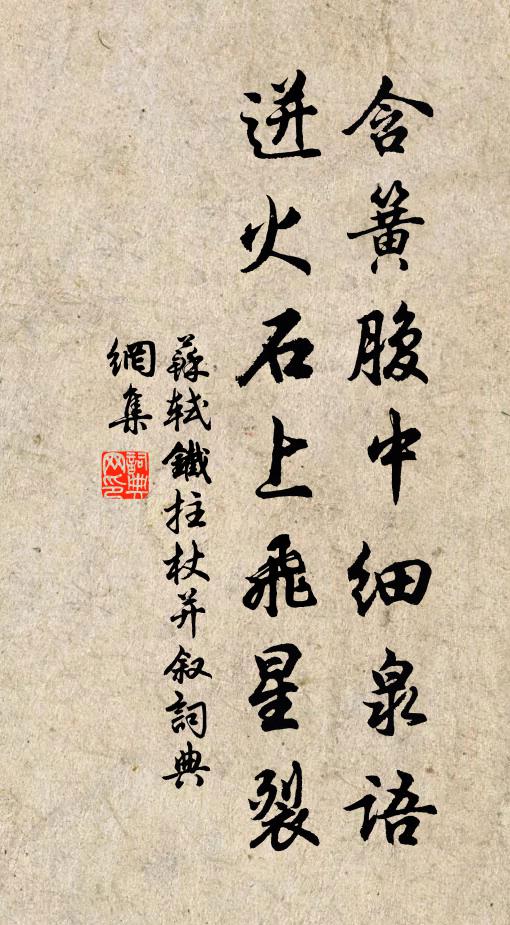 含簧腹中細泉語
迸火石上飛星裂
蘇軾鐵拄杖并叙詞典
網集
詞典
网印